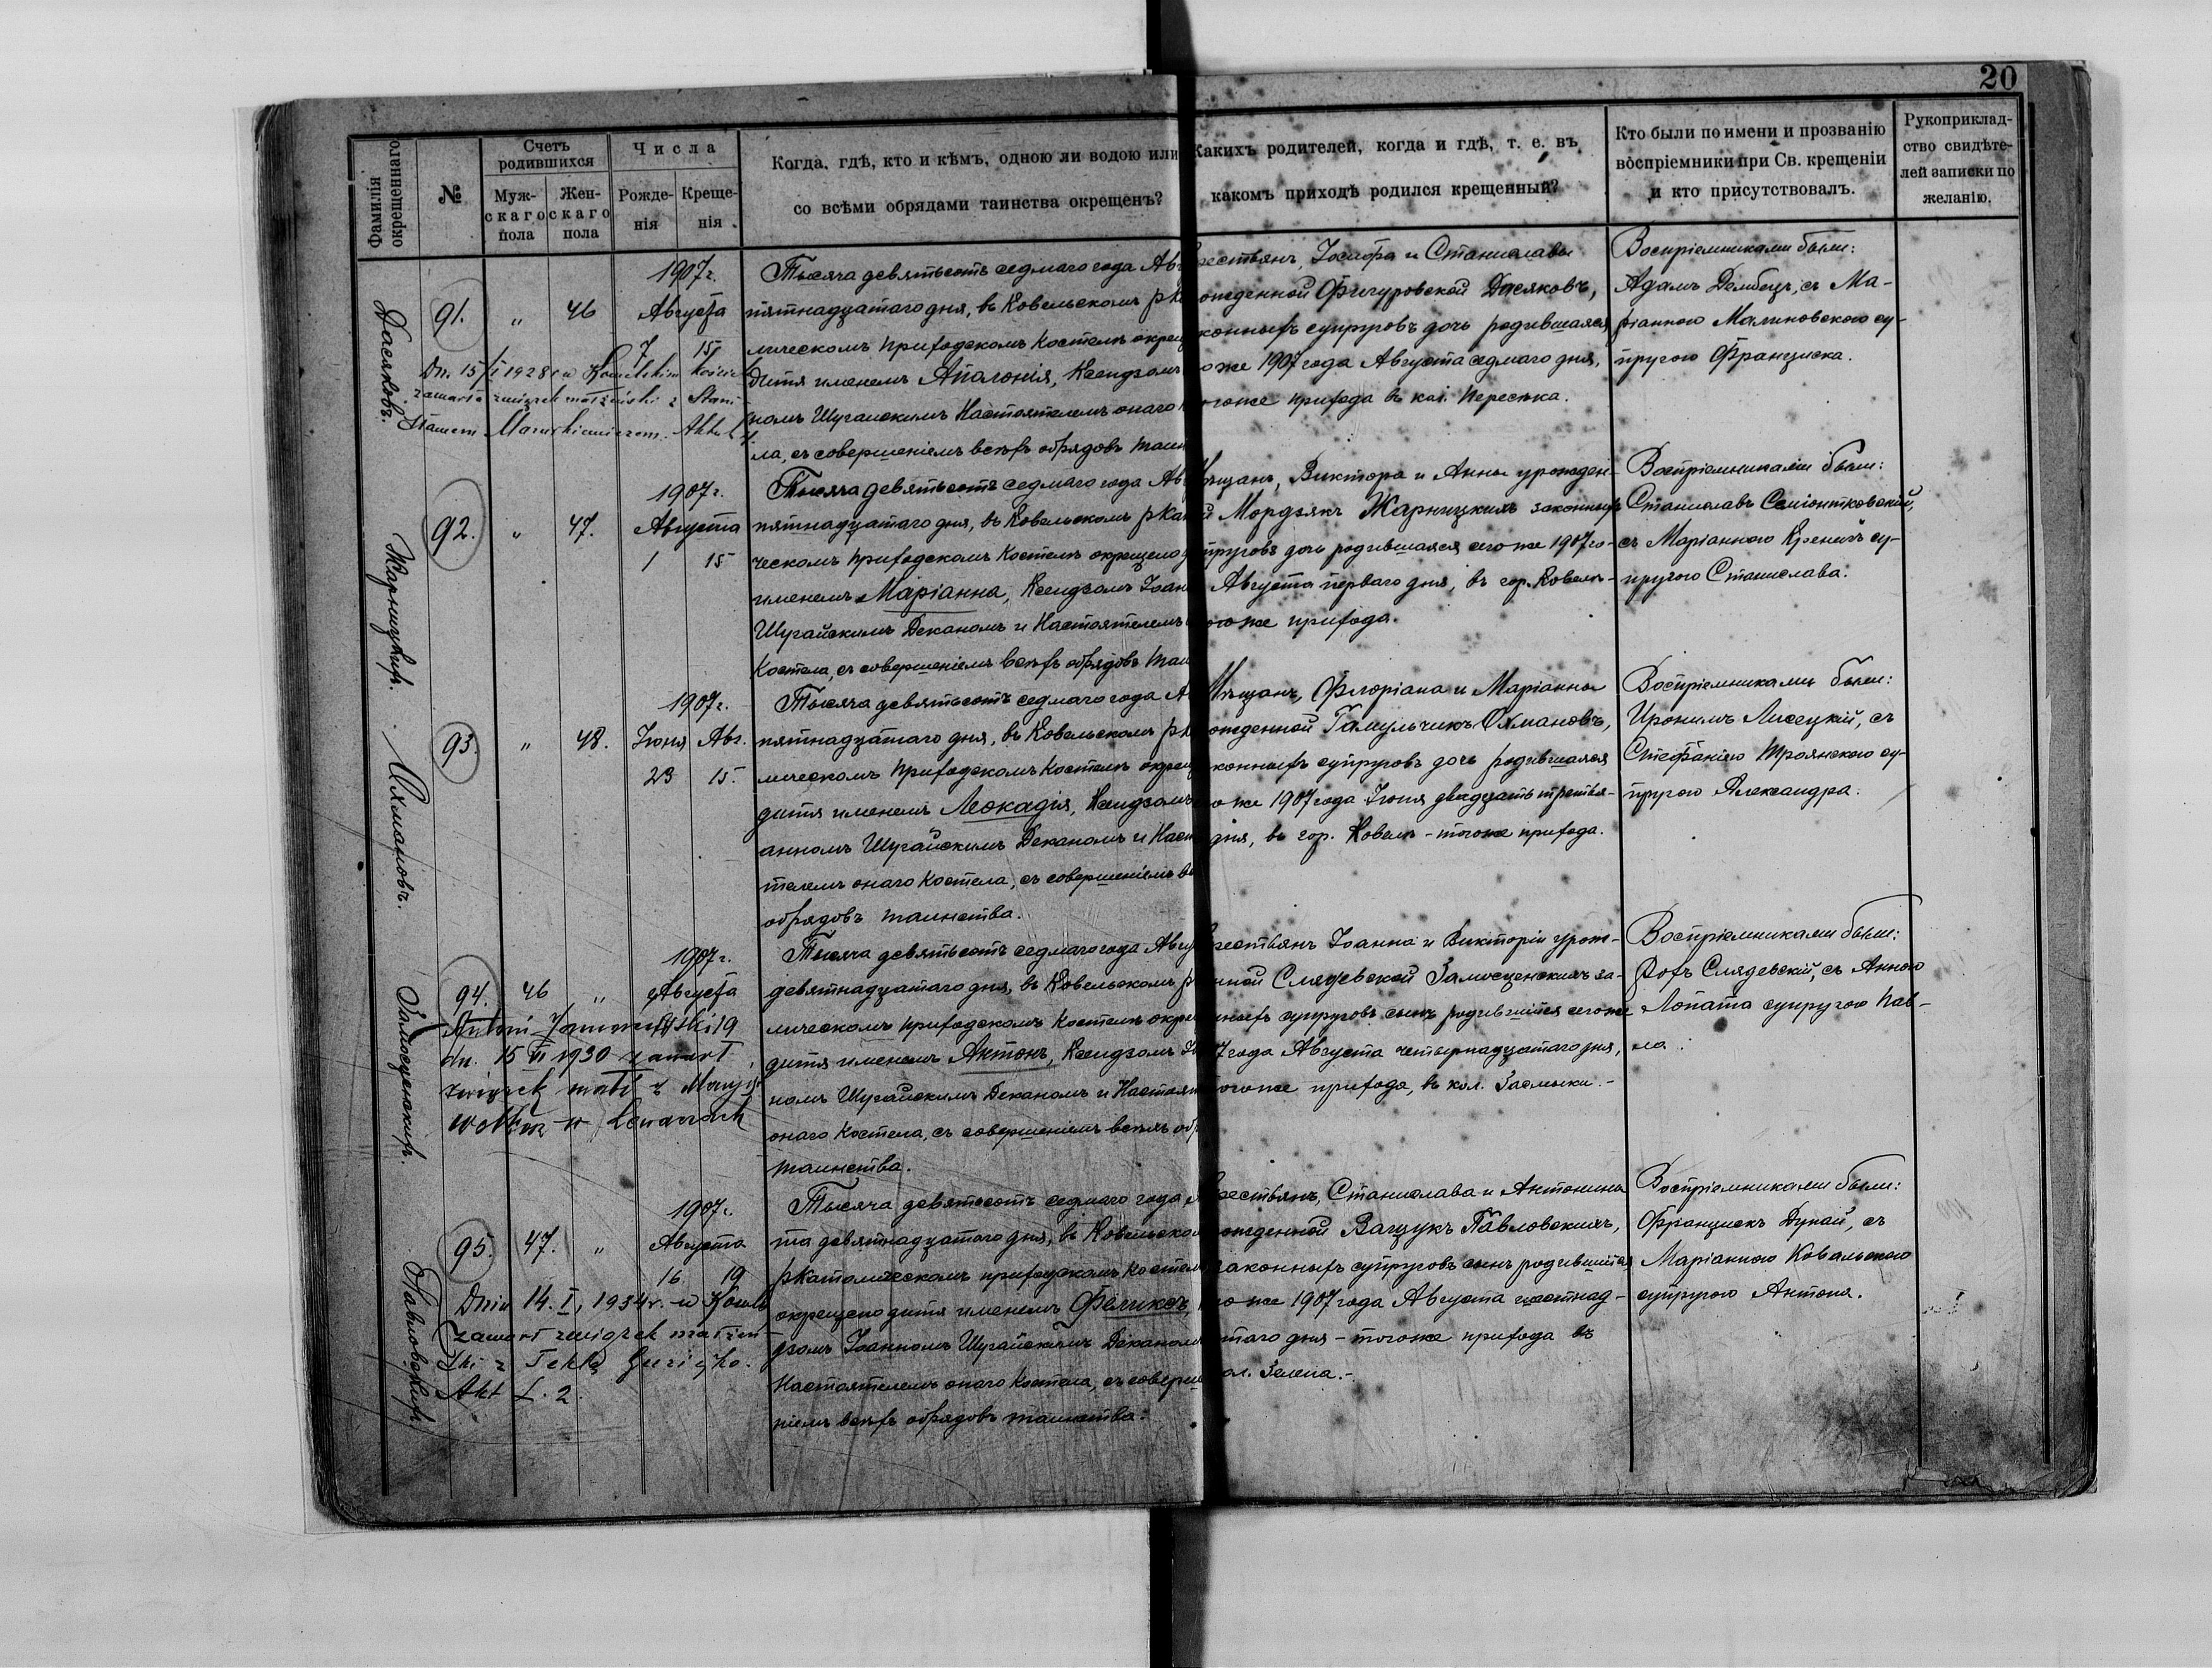 20
Фамилія окрещеннаго
№
Счетъ родившихся
Муж-
скаго
пола
Жен-
скаго
пола
Числа
Рожде-
нія
Креще-
нія
Когда, гдѣ, кто и кѣмъ, одною ли водою или
со всѣми обрядами таинства окрещенъ?
Какихъ родителей, когда и гдѣ, т. е. въ
какомъ приходѣ родился крещенный?
Кто были по имени и прозванію
воспріемники при Св. крещеніи
и кто присутствовалъ.
Рукоприклад-
ство свидѣте-
лей записки по
желанію.
Дасяковъ.
91. " 46
1907г.
Августа
7 15
Dn. 15/I 1928 r w Kowelskim
zawarła związek małżeński z Stani
sławem
Тысяча девятьсотъ седмаго года Ав
пятнадцатаго дня, въ Ковельскомъ рка
лическомъ приходскомъ костелѣ окрещ
дитя именемъ Апалонія, Ксендзомъ
номъ Шугайскимъ Настоятелемъ онаго
ла, съ совершеніемъ всѣхъ обрядовъ таин
рестьянъ, Іосафа и Станиславы
ожденной Фигуровской Дасяковъ,
конныхъ супруговъ дочь родившаяся
оже 1907 года Августа седмаго дня,
тогоже прихода въ кол. Пересѣка.
Воспріемниками были:
Адамъ Домбецъ, съ Ма-
ріанною Малиновскою су-
пругою Франциска.
Жарницкихъ.
92. " 47.
1907г.
Августа
1 15
Тысяча девятьсотъ седмаго года Ав
пятнадцатаго дня, въ Ковельскомъ ркат
ческомъ приходскомъ костелѣ окрещено д
именемъ Маріанна, Ксендзомъ Іоан
Шугайскимъ Деканомъ и Настоятелемъ
костела, съ совершеніемъ всѣхъ обрядовъ таин
ѣщанъ, Виктора и Анны урожден-
й Мордзякъ Жарницкихъ законныхъ
пруговъ дочь родившаяся сего же 1907 го-
Августа перваго дня, въ гор. Ковель-
тогоже прихода.
Воспріемниками были:
Станиславъ
съ Маріанною су-
пругою Станислава.
Ояхмановъ.
93. " 48.
1907г.
Іюня Авг.
23 15.
Тысяча девятьсотъ седмаго года А
пятнадцатаго дня, въ Ковельскомъ рк
лическомъ приходскомъ костелѣ окрещ
дитя именемъ Леокадія, Ксендзомъ
анномъ Шугайскимъ Деканомъ и Наст
телемъ онаго костела, съ совершеніемъ в
обрядовъ таинства.
Мѣщанъ, Флоріана и Маріанны
ожденной Гамульчикъ
конныхъ супруговъ дочь родившаяся
оже 1907 года Іюня двадцать третья-
дня, въ гор. Ковель - тогоже прихода.
Воспріемниками были:
Иронимъ Лисецкій, съ
Стефаніею Троянскою су-
пругою Александра.
Замосценскихъ.
94. 46 "
1907г.
Августа
19
Antoni
dn. 15 VI 1930 zawarł
związek małż z Maryją
w
Тысяча девятьсотъ седмаго года Авгу
девятнадцатаго дня, въ Ковельскомъ р
лическомъ приходскомъ костелѣ окрещ
дитя именемъ Антонъ, Ксендзомъ
номъ Шугайскимъ Деканомъ и Настоят
онаго костела, съ совершеніемъ всѣхъ обр
таинства.
рестьянъ Іоанна и Викторіи урож-
нной Слядевской Замосценскихъ за-
нныхъ супруговъ сынъ родившійся сегоже
7 года Августа четырнадцатаго дня,
тогоже прихода, въ кол. Засмыки.-
Воспріемниками были:
Рохъ Слядевскій, съ Анною
Лопата супругою Пав-
ла.
Павловскихъ
95. 47. "
1907г.
Августа
16 19
Dnia 14. I. 1934r. w Kowlu
zawarł związek małżeń-
ski z Teklą
Akt L. 2
Тысяча девятьсотъ седмаго года А
та девятнадцатаго дня, въ Ковельском
ркатолическомъ приходскомъ костел
окрещено дитя именемъ Феликсъ,
дзомъ Іоанномъ Шугайскимъ Деканом
Настоятелемъ онаго костела, съ соверше
ніемъ всѣхъ обрядовъ таинства.
рестьянъ, Станислава и Антонины
ожденной Ващукъ Павловскихъ,
законныхъ супруговъ сынъ родившійся
гоже 1907 года Августа шестнад-
таго дня - тогоже прихода въ
ол. Зелена.-
Воспріемниками были:
Францискъ Дунай, съ
Маріанною Ковальскою
супругою Антона.